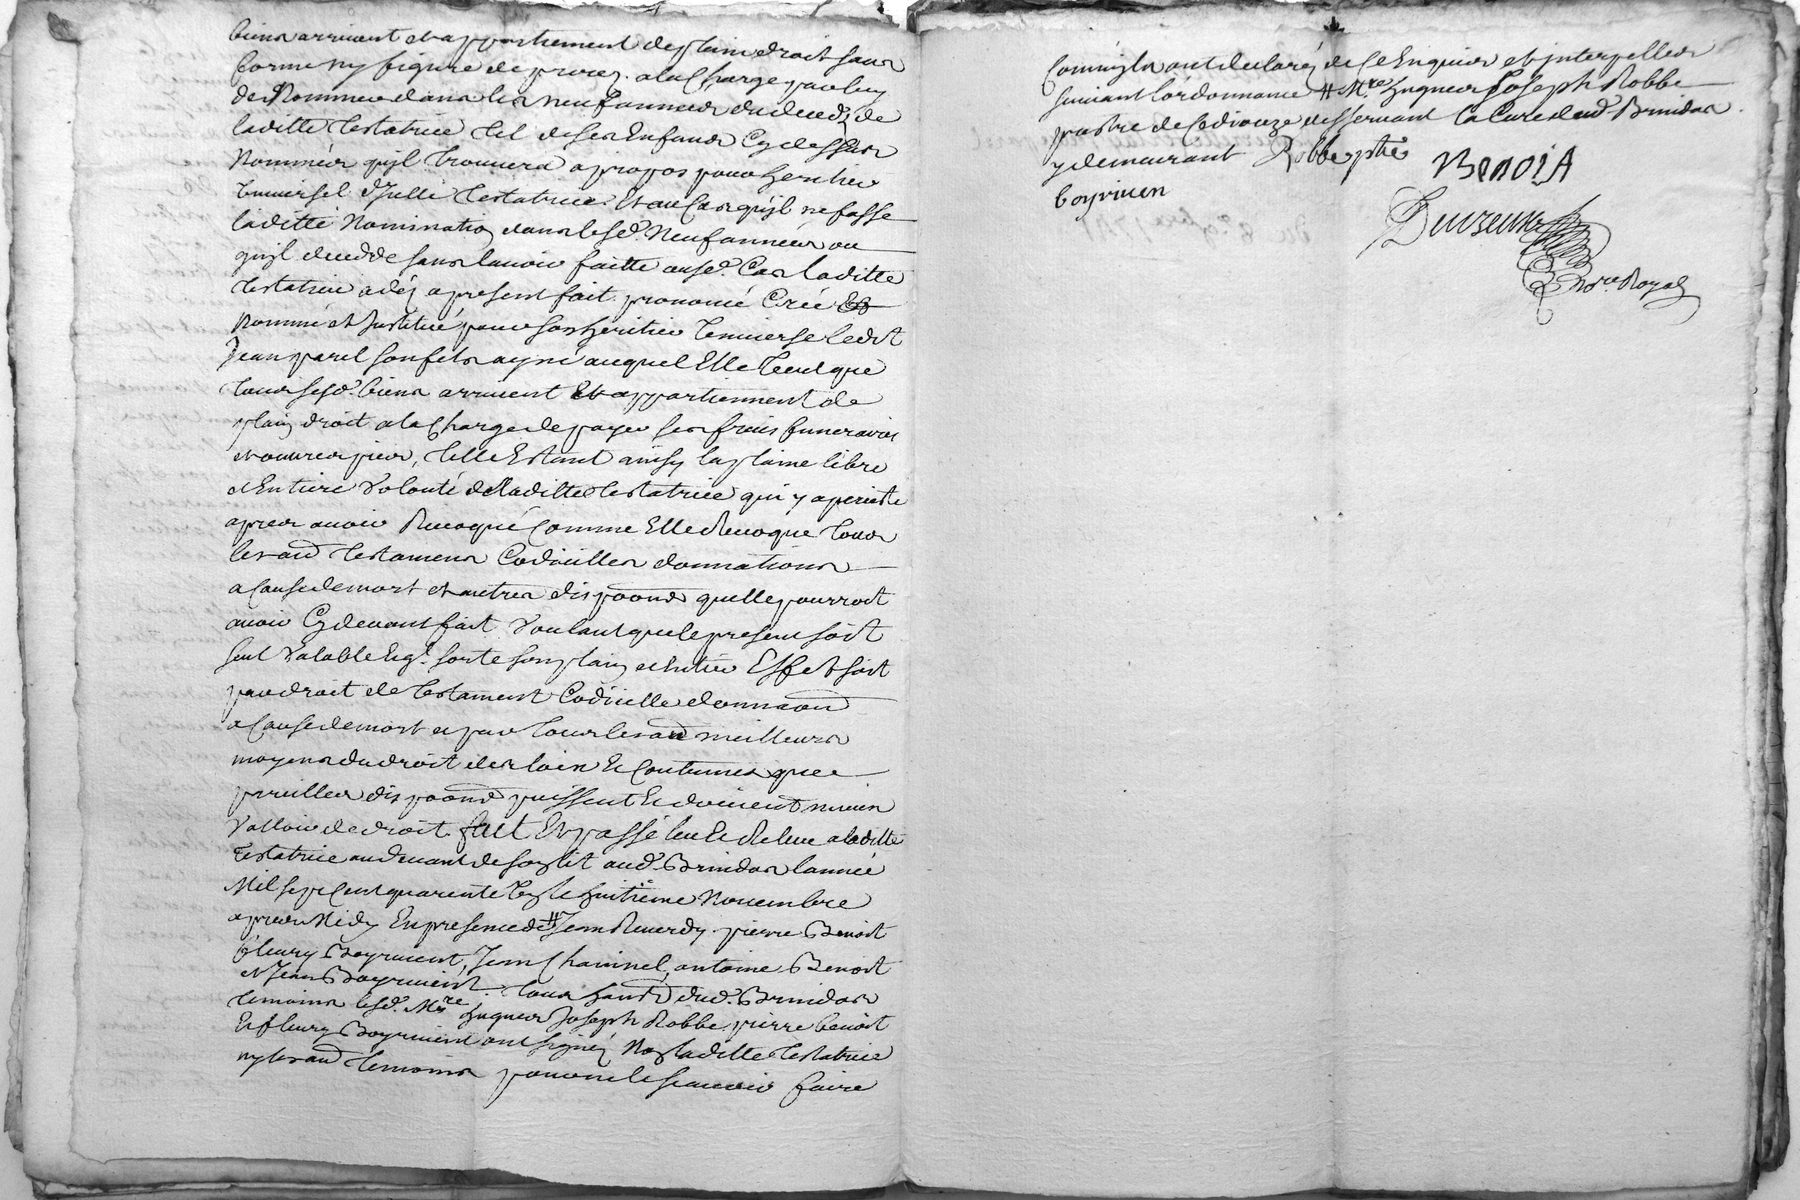 biens arrivent et appartiennent de plain droit sans
forme ny figure de procez. a la Charge par luy
de Nommer dans les neuf années du deceds de
laditte testatrice tel de ses Enfands Cy dessus
Nommées quil trouvera a propos pour heritier
universel d'Jcelle testatrice. Et au Cas quil ne fasse
laditte Nomination dans lesd. Neuf années ou
quil decedde sans lavoir faitte aud. Cas laditte
testatrice a dés a present fait prononcé Créé Et
Nommé et Jnstitué pour son heritier universel ledit
Jean parel son fils ayné auquel Elle veut que
tous sesd. biens arrivent Et appartiennent de
plain droit a la Charge de payer ses frais funeraires
et œuvres pies, telle Estant ainsy la plaine libre
et Entiere Volonté de laditte testatrice qui y a persisté
apres avoir Revoqué Comme Elle Revoque tous
les aud testamens Codicilles donnations
a Cause de mort et autres dispoons quelle pourroit
avoir Cy devant fait Voulant que le present soit
seul Valable Eq. sorte son plain et Entier Effet soit
par droit de testament Codicille donnaon
a Cause de mort et par tous les aud meilleurs
moyens du droit des loix Et Coutumes que
pareilles dispoons puissent Et doivent mieux
Valloir de droit. fait Et passé leu Et Releu a laditte
testatrice au devant de son lit aud. Brindas lannée
Mil sept Cent quarante Le huitieme Novembre
apres Midy En presence de # Jean Reverdy. pierre Benoit
fleury Boyrivent, Jean Chavinel, antoine Benoit
et Jean Boyrivent. tous hants dud. Brindas
temoins lesd. Mre hugues Joseph Robbe. pierre benoit
Et fleury Boyrivent ont signés Non laditte testatrice
ny les aud temoins pour ne le scavoir faire
Comm'jls ont declarés de Ce Enquis et interpellés
suivant lordonnance # Mre hugues Joseph Robbe
prestre desservant la Cure dud. Brindas
y demeurant Robbe ptre BENOIT
boyriven
Not. Royal